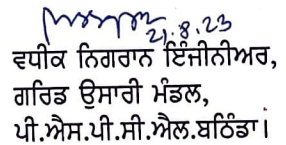 21.8.23
ਵਧੀਕ ਨਿਗਰਾਨ ਇੰਜੀਨੀਅਰ,
ਗਰਿਡ ਉਸਾਰੀ ਮੰਡਲ,
ਪੀ.ਐਸ.ਪੀ.ਸੀ.ਐਲ.ਬਠਿੰਡਾ।